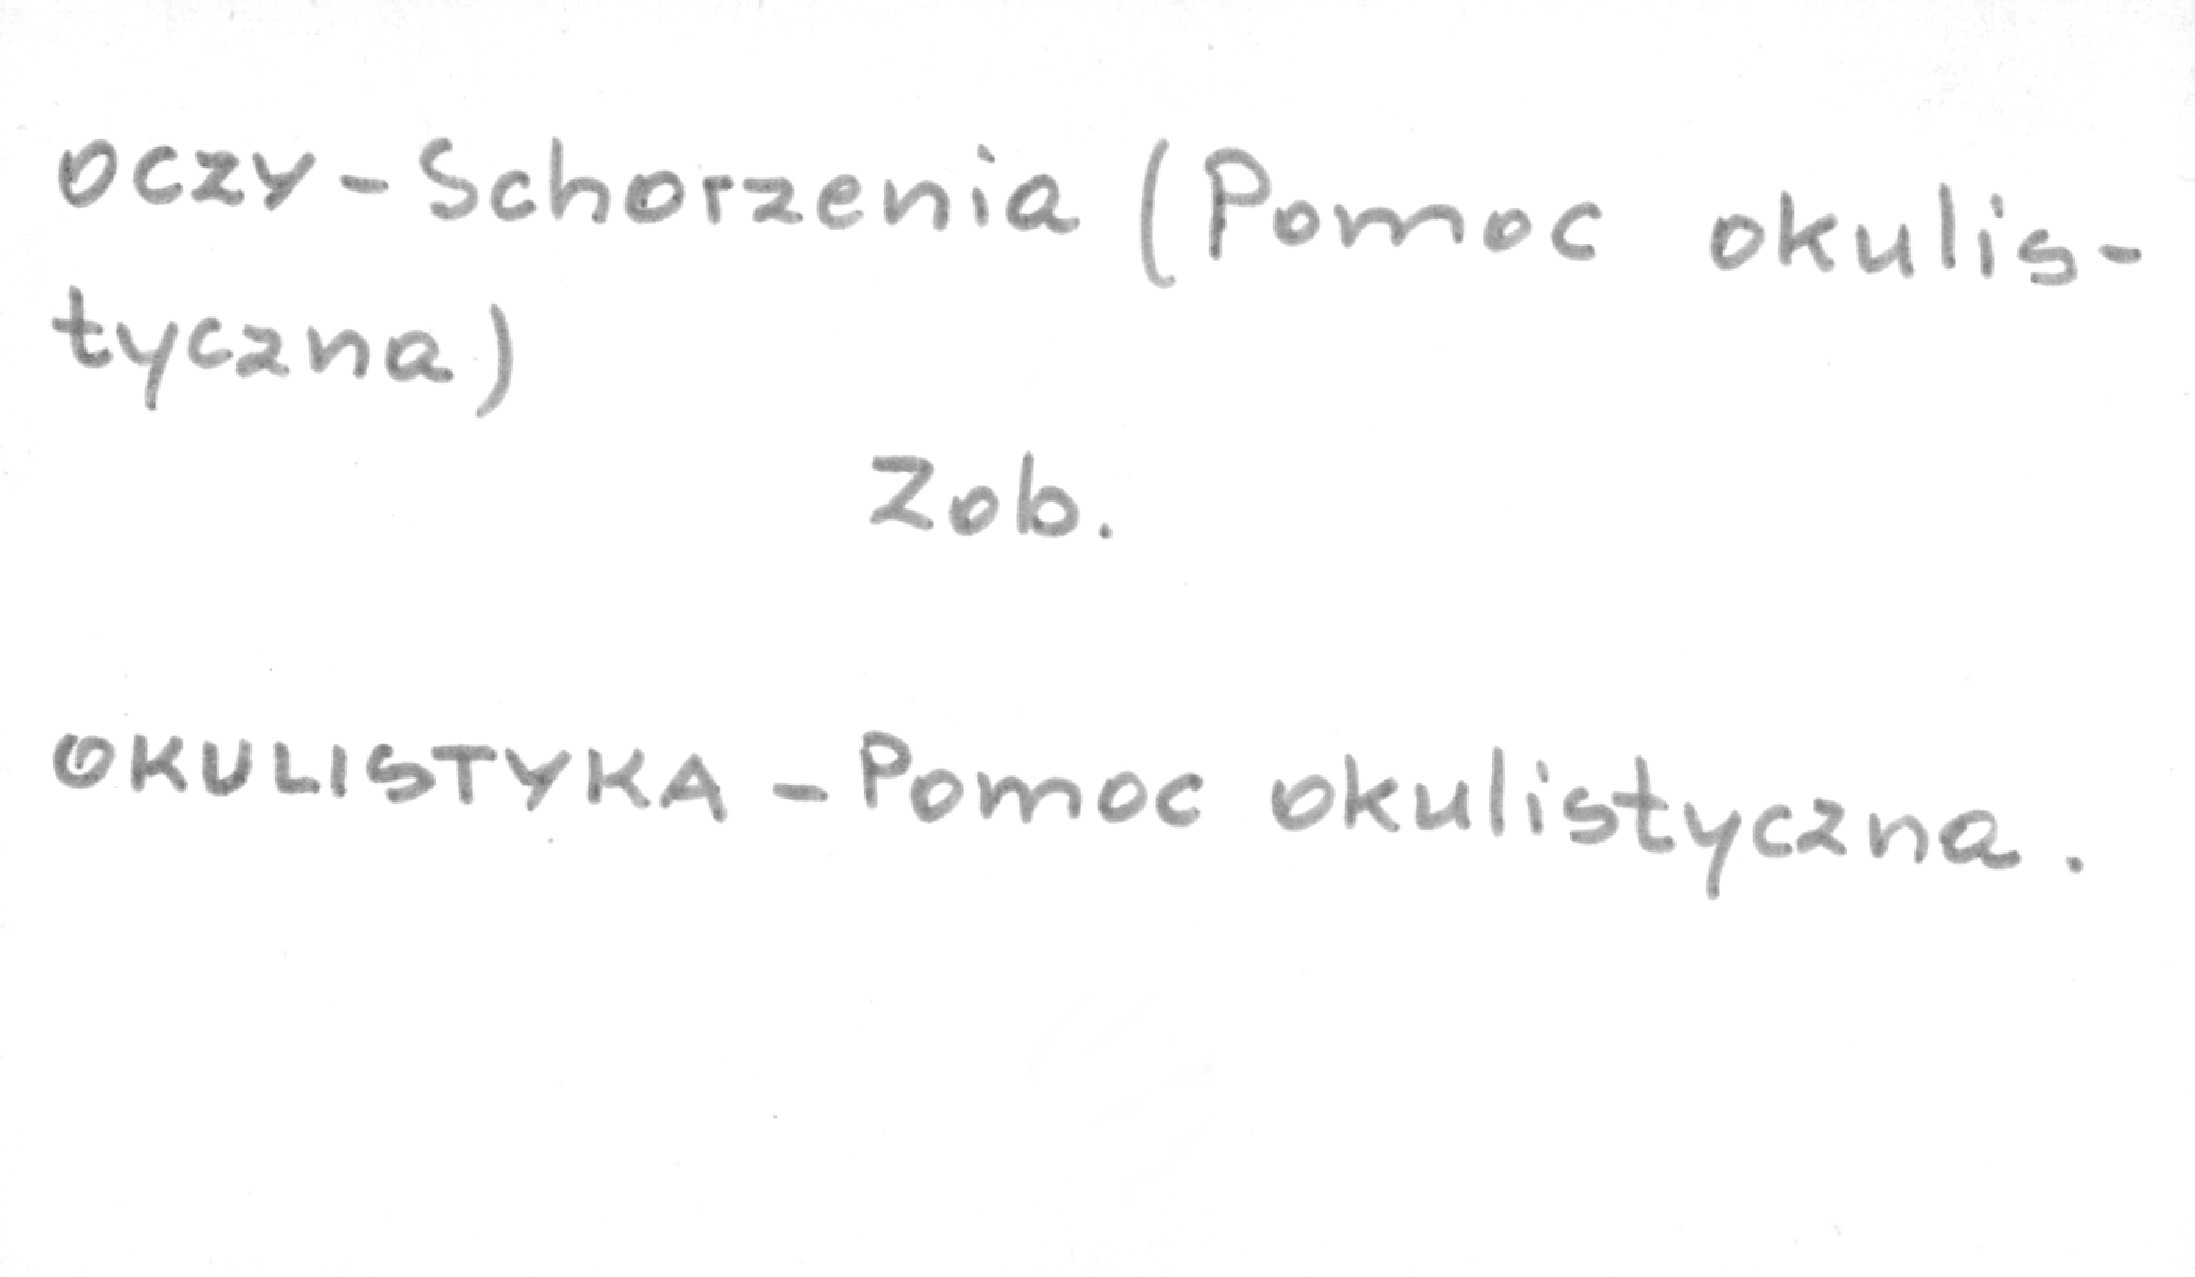 OCZY - Schorzenia (Pomoc okulis-
tyczna)
Zob.
OKULISTYKA - Pomoc okulistyczna.